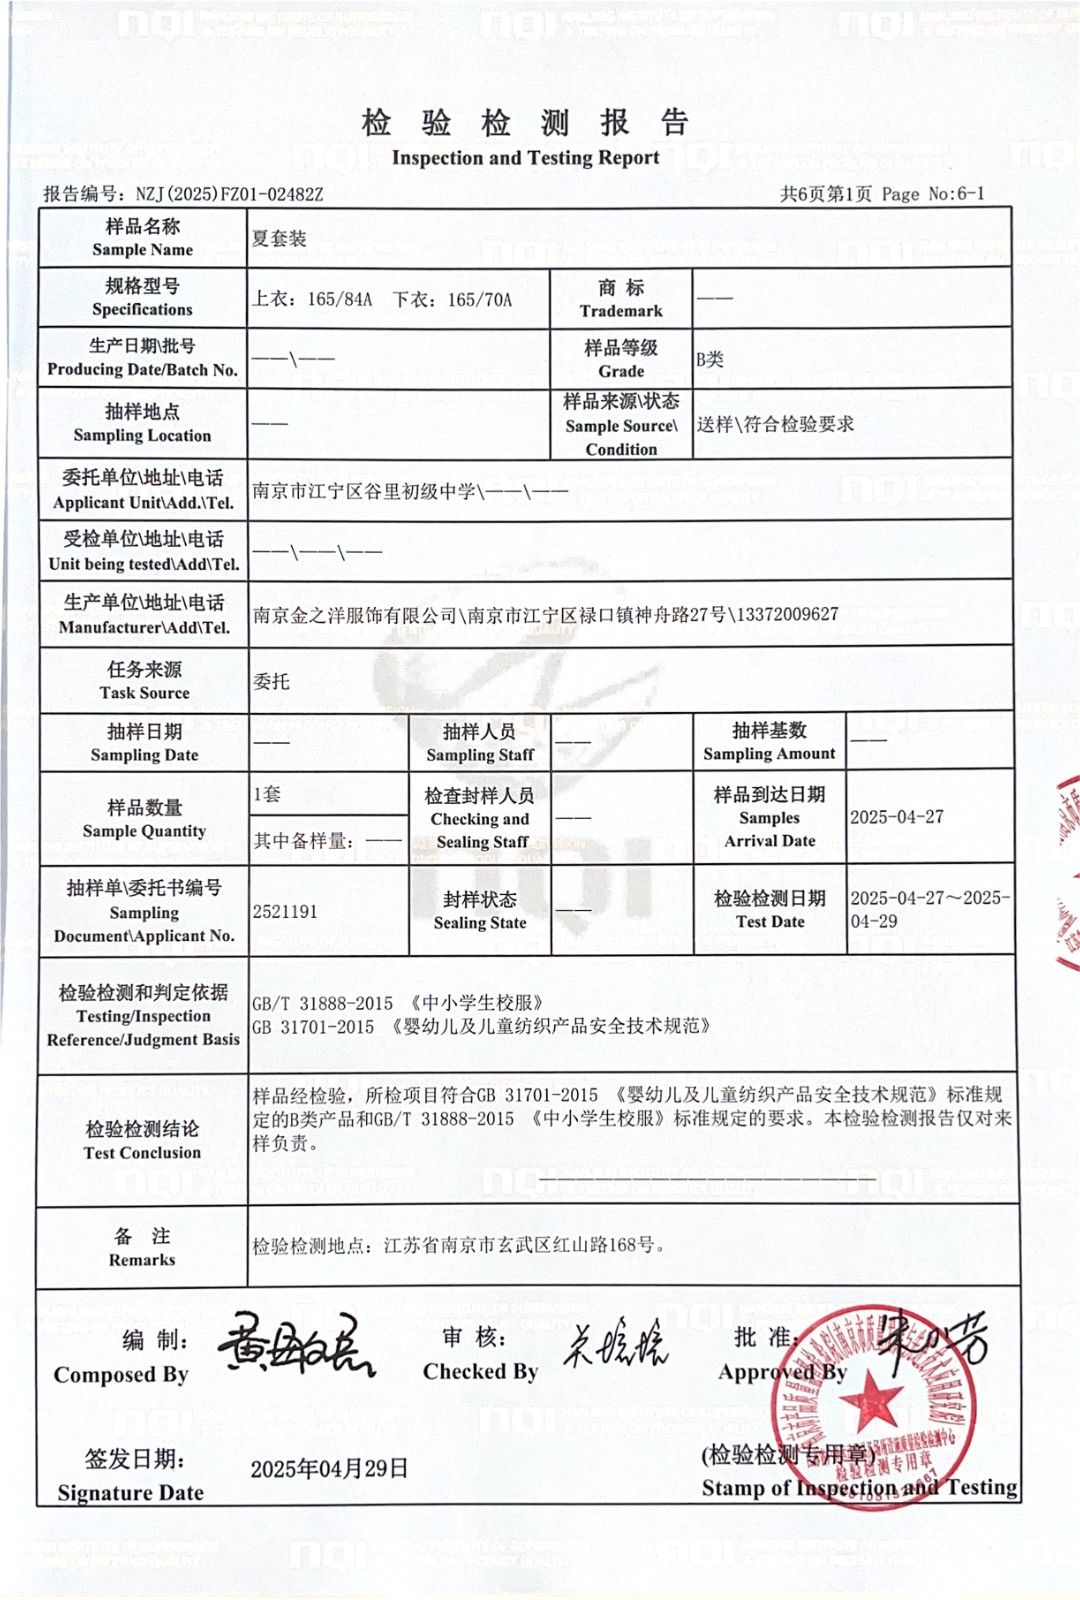 检验检测报告
Inspection and Testing Report
报告编号：NZJ(2025)FZ01-02482Z
共6页第1页 Page No:6-1
样品名称
Sample Name
夏套装
规格型号
Specifications
上衣：165/84A 下衣：165/70A
商 标
Trademark
——
生产日期\批号
Producing Date/Batch No.
——\——
样品等级
Grade
B类
抽样地点
Sampling Location
——
样品来源\状态
Sample Source\
Condition
送样\符合检验要求
委托单位\地址\电话
Applicant Unit\Add.\Tel.
南京市江宁区谷里初级中学\——\——
受检单位\地址\电话
Unit being tested\Add\Tel.
——\——\——
生产单位\地址\电话
Manufacturer\Add\Tel.
南京金之洋服饰有限公司\南京市江宁区禄口镇神舟路27号\13372009627
任务来源
Task Source
委托
抽样日期
Sampling Date
——
抽样人员
Sampling Staff
——
抽样基数
Sampling Amount
——
样品数量
Sample Quantity
1套
其中备样量：——
检查封样人员
Checking and
Sealing Staff
——
样品到达日期
Samples
Arrival Date
2025-04-27
抽样单\委托书编号
Sampling
Document\Applicant No.
2521191
封样状态
Sealing State
——
检验检测日期
Test Date
2025-04-27～2025-
04-29
检验检测和判定依据
Testing/Inspection
Reference/Judgment Basis
GB/T 31888-2015 《中小学生校服》
GB 31701-2015 《婴幼儿及儿童纺织产品安全技术规范》
检验检测结论
Test Conclusion
样品经检验，所检项目符合GB 31701-2015 《婴幼儿及儿童纺织产品安全技术规范》标准规
定的B类产品和GB/T 31888-2015 《中小学生校服》标准规定的要求。本检验检测报告仅对来
样负责。
备 注
Remarks
检验检测地点：江苏省南京市玄武区红山路168号。
编 制：
Composed By
审 核：
Checked By
批 准：
Approved By
签发日期：
Signature Date
2025年04月29日
(检验检测专用章)
Stamp of Inspection and Testing
检验检测专用章